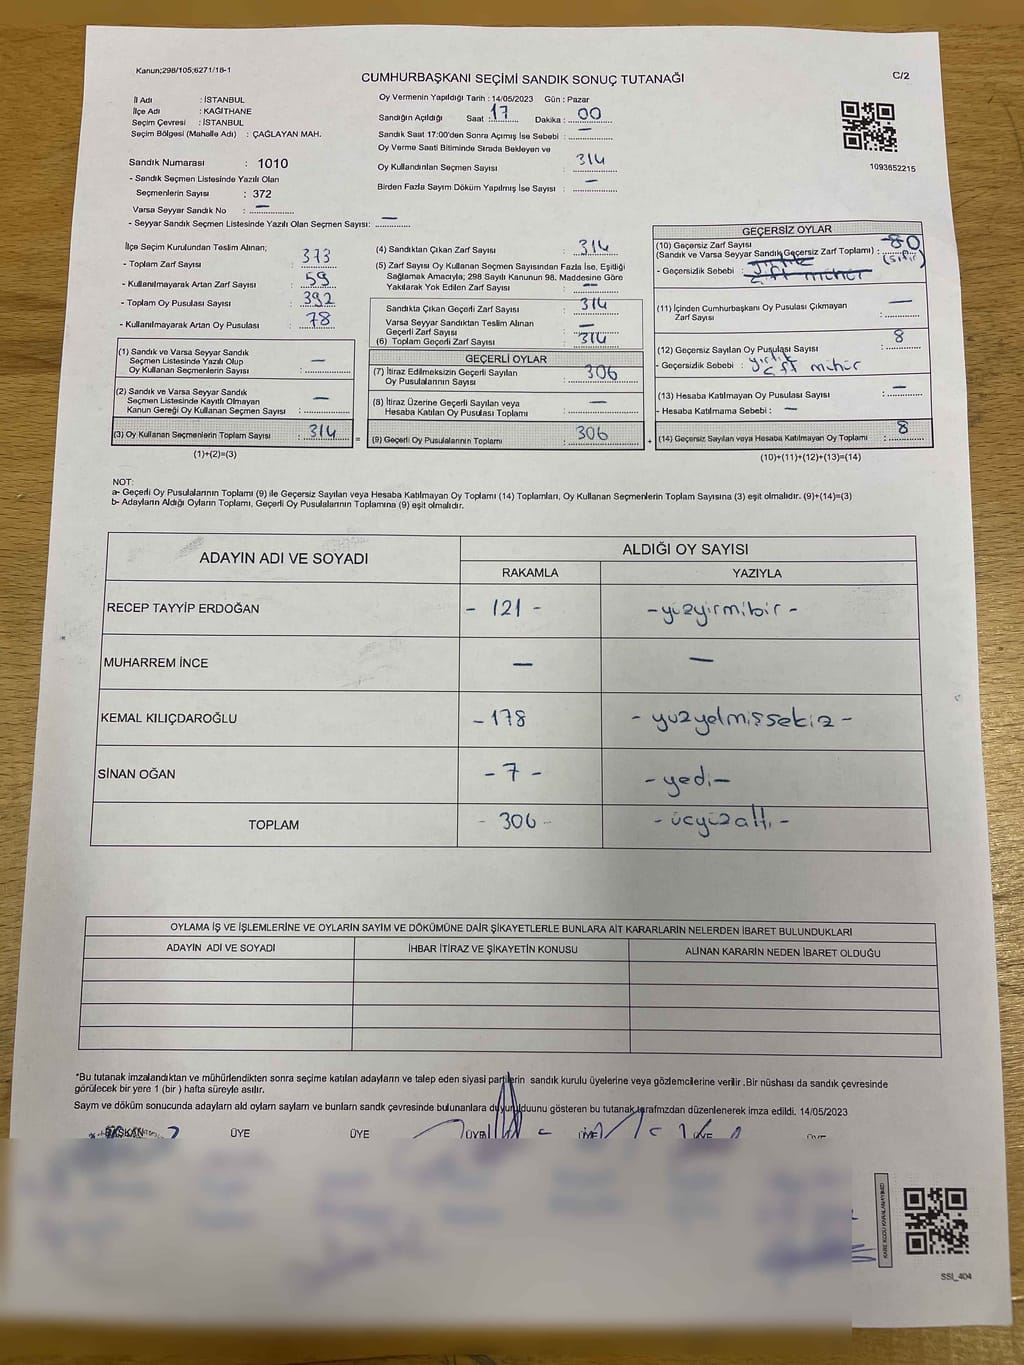 Kanun;298/105;6271/18-1
CUMHURBAŞKANI SEÇİMİ SANDIK SONUÇ TUTANAĞI
C/2
İl Adı : İSTANBUL
İlçe Adı : KAĞITHANE
Seçim Çevresi : İSTANBUL
Seçim Bölgesi (Mahalle Adı) : ÇAĞLAYAN MAH.
Sandık Numarası : 1010
- Sandık Seçmen Listesinde Yazılı Olan
Seçmenlerin Sayısı : 372
Varsa Seyyar Sandık No : —
- Seyyar Sandık Seçmen Listesinde Yazılı Olan Seçmen Sayısı: —
Oy Vermenin Yapıldığı Tarih : 14/05/2023 Gün : Pazar
Sandığın Açıldığı Saat : 17 Dakika : 00
Sandık Saat 17:00'den Sonra Açımış İse Sebebi : —
Oy Verme Saati Bitiminde Sırada Bekleyen ve
Oy Kullandırılan Seçmen Sayısı : 314
Birden Fazla Sayım Döküm Yapılmış İse Sayısı : —
1093652215
İlçe Seçim Kurulundan Teslim Alınan;
- Toplam Zarf Sayısı : 373
- Kullanılmayarak Artan Zarf Sayısı : 59
- Toplam Oy Pusulası Sayısı : 392
- Kullanılmayarak Artan Oy Pusulası : 78
(1) Sandık ve Varsa Seyyar Sandık
Seçmen Listesinde Yazılı Olup
Oy Kullanan Seçmenlerin Sayısı : —
(2) Sandık ve Varsa Seyyar Sandık
Seçmen Listesinde Kayıtlı Olmayan
Kanun Gereği Oy Kullanan Seçmen Sayısı : —
(3) Oy Kullanan Seçmenlerin Toplam Sayısı : 314
(1)+(2)=(3)
(4) Sandıktan Çıkan Zarf Sayısı : 314
(5) Zarf Sayısı Oy Kullanan Seçmen Sayısından Fazla İse, Eşitliği
Sağlamak Amacıyla; 298 Sayılı Kanunun 98. Maddesine Göre
Yakılarak Yok Edilen Zarf Sayısı : —
Sandıkta Çıkan Geçerli Zarf Sayısı : 314
Varsa Seyyar Sandıktan Teslim Alınan
Geçerli Zarf Sayısı : —
(6) Toplam Geçerli Zarf Sayısı : 314
GEÇERLİ OYLAR
(7) İtiraz Edilmeksizin Geçerli Sayılan
Oy Pusulalarının Sayısı : 306
(8) İtiraz Üzerine Geçerli Sayılan veya
Hesaba Katılan Oy Pusulası Toplamı : —
= (9) Geçerli Oy Pusulalarının Toplamı : 306
GEÇERSİZ OYLAR
(10) Geçersiz Zarf Sayısı
(Sandık ve Varsa Seyyar Sandık Geçersiz Zarf Toplamı) : 0
(sıfır)
- Geçersizlik Sebebi : yırtık
çift mühür
(11) İçinden Cumhurbaşkanı Oy Pusulası Çıkmayan
Zarf Sayısı : —
(12) Geçersiz Sayılan Oy Pusulası Sayısı : 8
- Geçersizlik Sebebi : yırtık
çift mühür
(13) Hesaba Katılmayan Oy Pusulası Sayısı : —
- Hesaba Katılmama Sebebi : —
+ (14) Geçersiz Sayılan veya Hesaba Katılmayan Oy Toplamı : 8
(10)+(11)+(12)+(13)=(14)
NOT:
a- Geçerli Oy Pusulalarının Toplamı (9) ile Geçersiz Sayılan veya Hesaba Katılmayan Oy Toplamı (14) Toplamları, Oy Kullanan Seçmenlerin Toplam Sayısına (3) eşit olmalıdır. (9)+(14)=(3)
b- Adayların Aldığı Oyların Toplamı, Geçerli Oy Pusulalarının Toplamına (9) eşit olmalıdır.
ADAYIN ADI VE SOYADI
ALDIĞI OY SAYISI
RAKAMLA YAZIYLA
RECEP TAYYİP ERDOĞAN - 121 - -yüzyirmibir-
MUHARREM İNCE — —
KEMAL KILIÇDAROĞLU -178 - yüzyetmişsekiz -
SİNAN OĞAN - 7 - -yedi-
TOPLAM - 306 - - üçyüzaltı -
OYLAMA İŞ VE İŞLEMLERİNE VE OYLARIN SAYIM VE DÖKÜMÜNE DAİR ŞİKAYETLERLE BUNLARA AİT KARARLARIN NELERDEN İBARET BULUNDUKLARI
ADAYIN ADI VE SOYADI İHBAR İTİRAZ VE ŞİKAYETİN KONUSU ALINAN KARARIN NEDEN İBARET OLDUĞU
*Bu tutanak imzalandıktan ve mühürlendikten sonra seçime katılan adayların ve talep eden siyasi partilerin sandık kurulu üyelerine veya gözlemcilerine verilir .Bir nüshası da sandık çevresinde
görülecek bir yere 1 (bir ) hafta süreyle asılır.
Saym ve döküm sonucunda adayların ald oyların sayların ve bunların sandk çevresinde bulunanlara duyurulduunu gösteren bu tutanak tarafmzdan düzenlenerek imza edildi. 14/05/2023
BAŞKAN ÜYE ÜYE ÜYE ÜYE ÜYE ÜYE
KARE KODU KARALAMAYINIZ
SSI_404